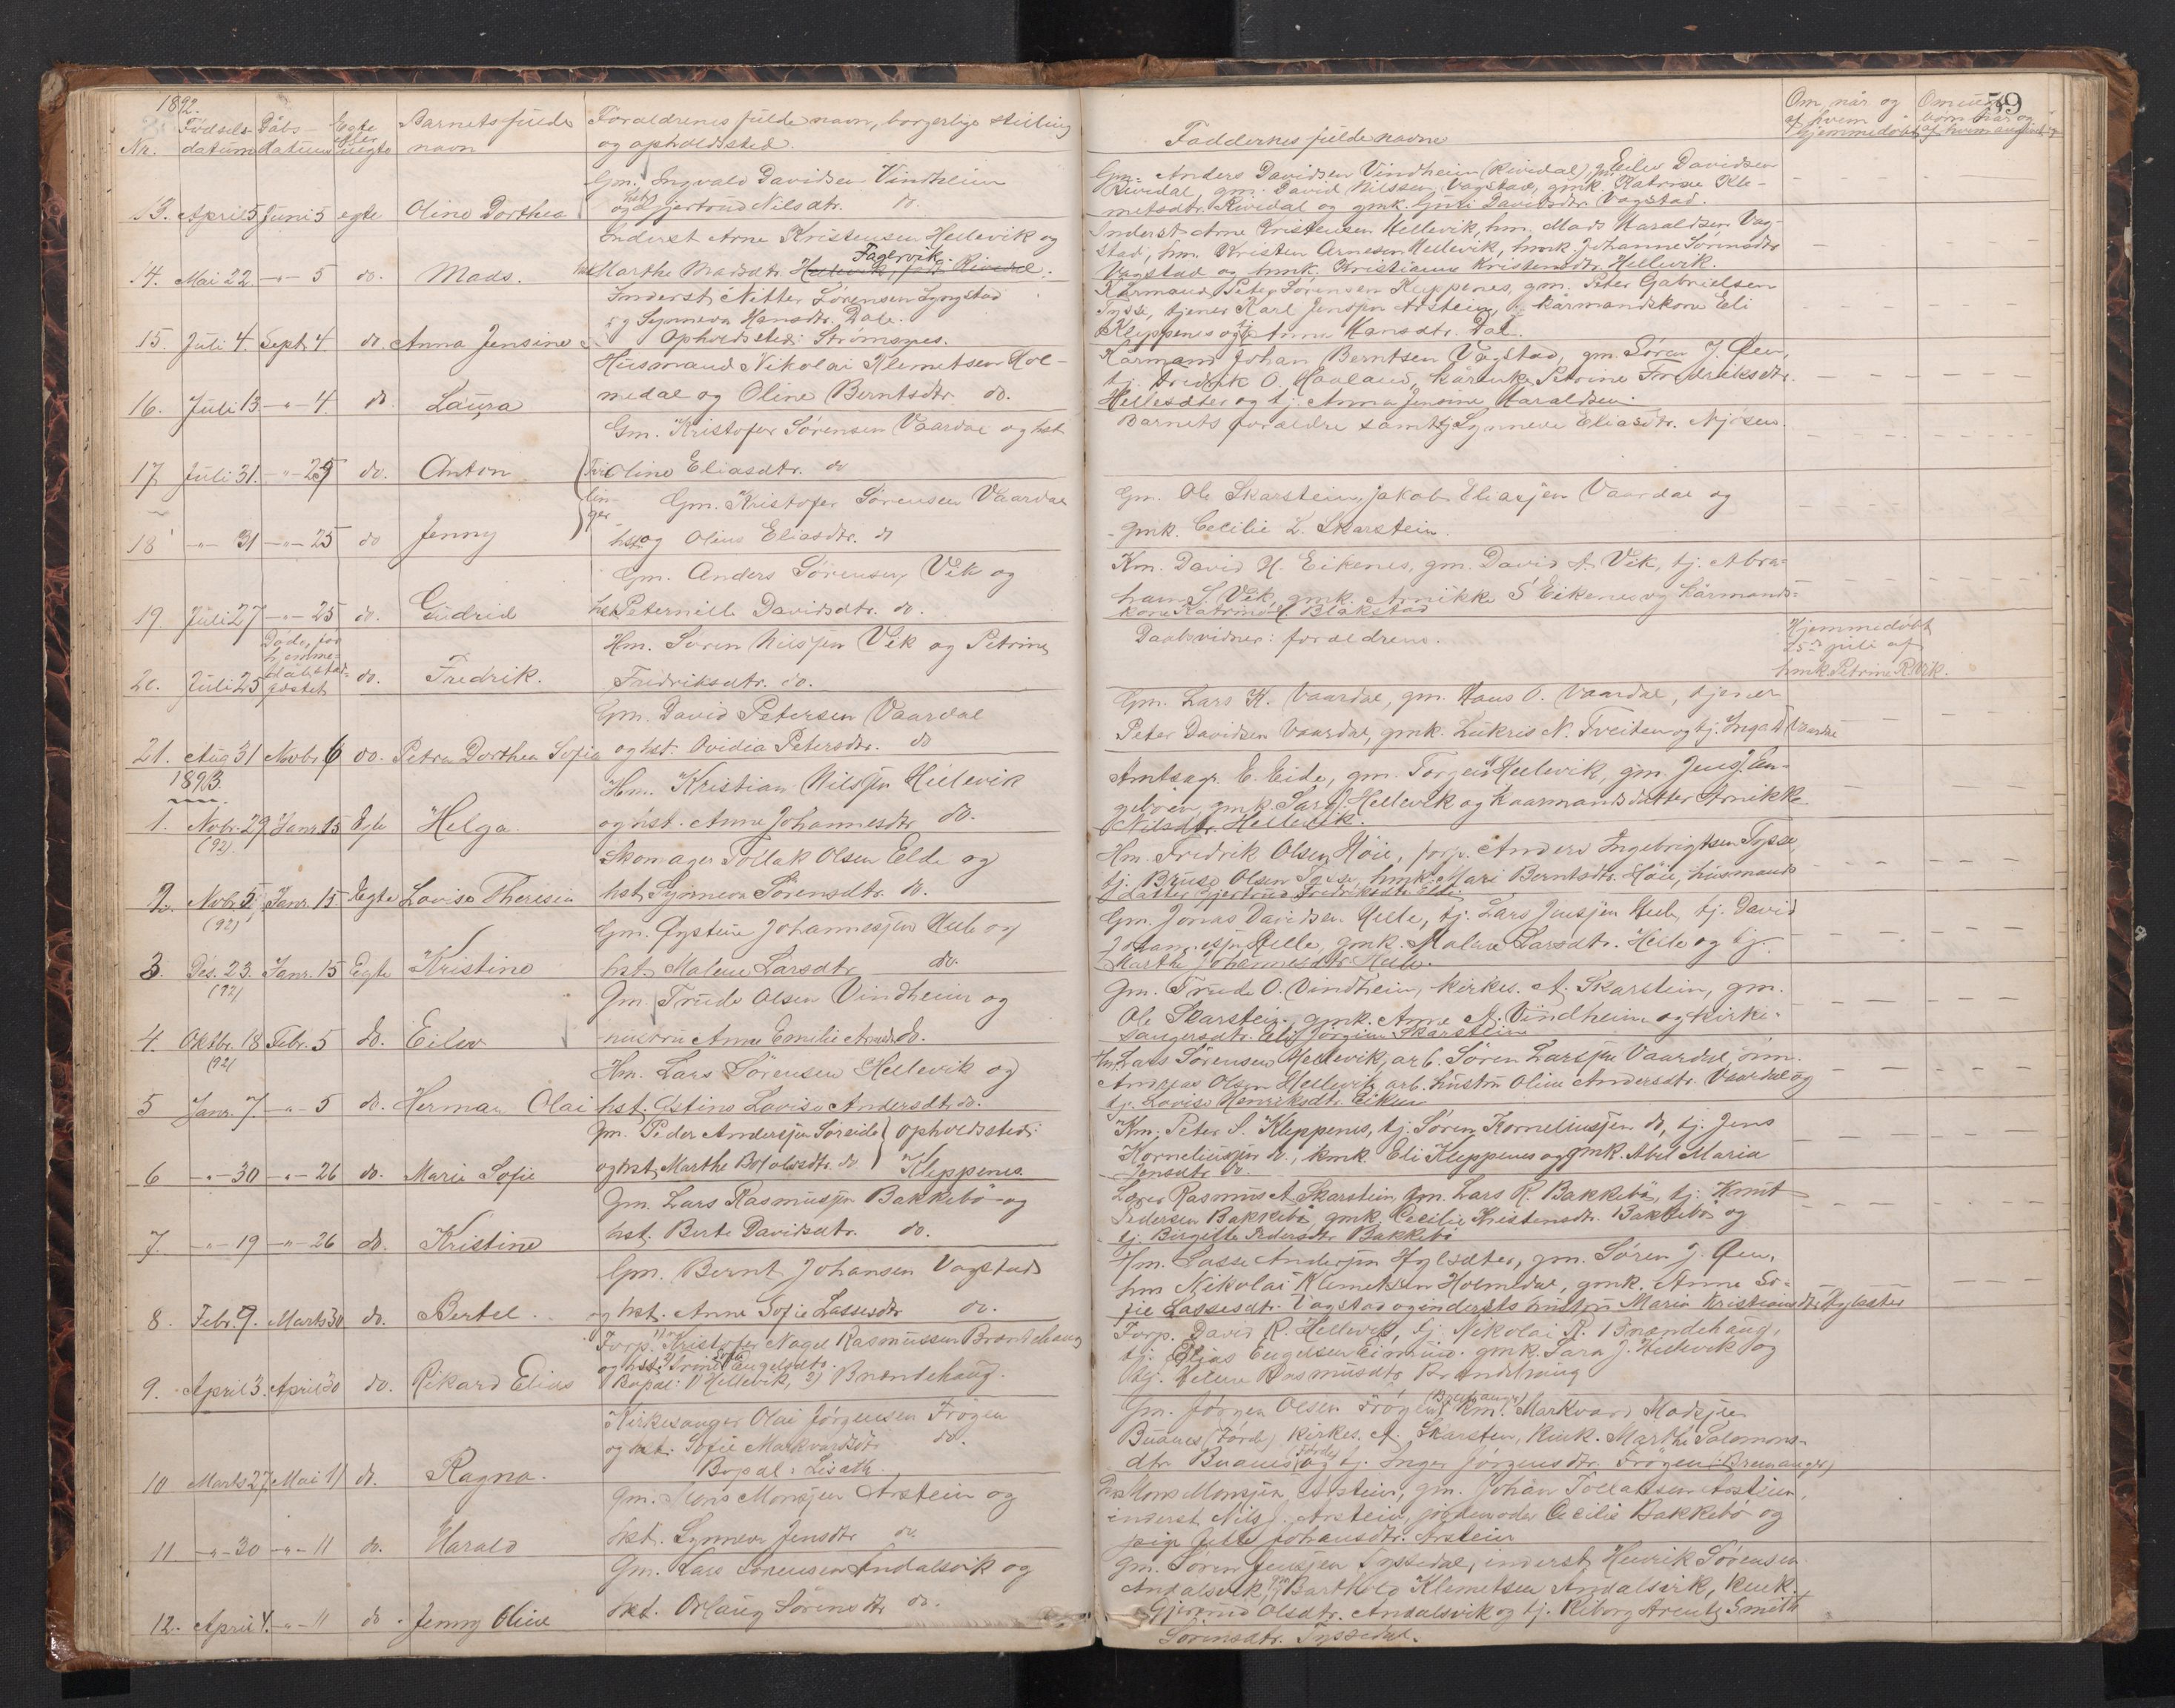 1892.
Nr. Fødsels datum Dåbs datum Egte eller uegte Barnets fulde navn Forældrenes fulde navn, borgerlige stilling og opholdssted.
13. April 5 Juni 5 egte Oline Dorthea
Gm. Ingvald Davidsen Vindheim
og hst. Gjertrud Nilsdtr. do.
14. Mai 22. -"- 5 do. Mads.
Inderst Arne Kristensen Hellevik og
hst. Marthe Madsdtr. Fagervik.
15. Juli 4. Sept. 4. do. Anna Jensine
Inderst Nitter Sørensen Lyngstad
og Synneva Hansdtr. Dale.
Opholdssted: Strømsnes.
16. Juli 13 -"- 4. do. Laura
Husmand Nikolai Klemetsen Hol-
medal og Oline Berntsdtr. do.
17 Juli 31. -"- 25 do. Anton
Gm. Kristofer Sørensen Vaardal og hst.
Oline Eliasdtr. do
Tvil-
lin-
ger
18 -"- 31 -"- 25 do Jenny
Gm. Kristofer Sørensen Vaardal
og hst. Oline Eliasdtr. do
19 Juli 27 -"- 25 do. Gudrid
Gm. Anders Sørensen Vik og
hst. Peternille Davidsdtr. do.
20. Juli 25 Døde før hjemme- do. Fredrik.
Hm. Søren Nilsjen Vik og Petrine
Fredriksdtr. do.
21. Aug 31 Novbr. 6 do. Petra Dorthea Sofia
Gm. David Petersen Vaardal
og hst. Ovidia Petersdtr. do
1893.
1. Novbr. 29 Janr. 15 Egte Helga.
(92)
Hm. Kristian Nilsjen Hellevik
og hst. Anne Johannesdtr do.
2. Novb. 5 Janr. 15 Egte Lovise Theresia
(92)
Skomager Tollak Olsen Elde og
hst. Synneva Sørensdtr. do.
3. Des. 23. Janr. 15 Egte Kristine
(92)
Gm. Øystein Johannesjen Helle og
hst. Malene Larsdtr. do.
4. Oktbr. 18 Febr. 5 do. Eilev
(92)
Gm. Trude Olsen Vindheim og
hustru Anne Emilie do.
5 Janr. 7. -"- 5 do. Herman Olai
Hm. Lars Sørensen Hellevik og
hst. Østine Lovise Andersdtr. do.
6 -"- 30 -"- 26 do. Marie Sofie
Gm. Peder Andersjen Sørside Opholdssted:
og hst. Marthe do Kleppenes
7. -"- 19 -"- 26 do. Kristine
Gm. Lars Rasmusjen Bakkebø og
hst. Berte Davidsdtr. do.
8. Febr. 9. Marts 30 do. Bertel.
Gm. Bernt Johansen Vagstad
og hst. Anne Sofie Lassesdtr do.
9. April 3. April 30 do. Rikard Elias
Forp. 1) Kristofer Nagel Rasmussen Brandehaug
og hst. 2) Trine Engelsdtr.
Bopæl: 1) Hellevik, 2) Brandehaug.
10 Marts 27 Mai 11 do. Ragna.
Kirkesanger Olai Jørgensen Frøgen
og hst. Sofie Markvardsdtr. do.
Bopæl: Liseth.
11 -"- 30 -"- 11 do. Harald
Gm. Mons Monsjen Arstein og
hst. Synneva Jensdtr do
12. April 4. -"- 11 do. Jenny Oline
Gm. Lars Sørensen Andalsvik og
hst. Orlaug Sørensdtr do.
59
Faddernes fulde navne
Om, når og af hvem hjemmedøbt
Gm. Anders Davidsen Vindheim (Rivedal), Eilev Davidsen
Rivedal, gm. David Nilssen Vagstad, gmk. Katrine Kle-
metsdtr. Rivedal og gmk. Guri Davidsdtr. Vagstad.
Inderst Arne Kristensen Hellevik, hm. Mads Haraldsen Vag-
stad, hm. Kristen Arnesen Hellevik, hmk. Johanne Sørensdtr
Vagstad og hmk. Kristianne Kristensdtr. Hellevik.
Kårmand Peter Sørensen Kleppenes, gm. Peter Gabrielsen
Tysse, tjener Karl Jensjen Arstein, kårmandskone Eli
Kleppenes og Anna Hansdtr. Dal.
Kårmand Johan Berntsen Vagstad, gm. Søren J. Øen,
tj. Fredrik O. Haaland, kårenke Petrine Fredriksdtr.
Hellesæter og tj. Anna Jensine Haraldsen.
Barnets forældre samt tj. Synneve Eliasdtr. Njøsen.
Gm. Ole Skarstein, Jakob Eliasjen Vaardal og
gmk. Cecilie L. Skarstein.
Km. David N. Eikenes, gm. David A. Vik, tj. Abra-
ham S. Vik, gmk. Arnikke S. Eikenes og kårmands-
kone Katrine Blakstad
Daabsvidner: forældrene.
Hjemmedøbt
25de juli af
hmk. Petrine R. Vik.
Gm. Lars K. Vaardal, gm. Hans O. Vaardal, tjener
Peter Davidsen Vaardal, gmk. Lukris N. Tveiten og tj. Inga D. Vaardal
Amtsagr. E. Eide, gm. Torger Hellevik, gm. Jens J. En-
gebøen, gmk. Sara J. Hellevik og kaarmandsdatter Arnikke
Nilsdtr. Hellevik.
Hm. Fredrik Olsen Høie, forp. Anders Ingebrigtsen Tysse,
tj. Bruse Olsen Tysse, hmk. Mari Berntsdtr. Høie, husmands
datter Gjertrud Fredriksdtr. Elde.
Gm. Jonas Davidsen Helle, tj. Lars Jensjen Helle, tj. David
Johannesjen Helle, gmk. Malene Larsdtr. Helle og tj.
Marthe Johannesdtr Helle.
Gm. Trude O. Vindheim, kirkes. A. Skarstein, gm.
Ole Skarstein, gmk. Anne A. Vindheim og kirke-
sangersdtr. Jørgine Skarstein
Hm. Lars Sørensen Hellevik, arb. Søren Larsjen Vaardal,
Andreas Olsen Hellevik, arb. hustru Oline Andersdtr. Vaardal og
tj. Lovise Henriksdtr. Eiken
Km. Peter S. Kleppenes, tj. Søren Korneliusjen do, tj. Jens
Korneliusjen do., kmk. Eli Kleppenes og gmk. Abel Maria
Jensdtr do.
Lærer Rasmus A. Skarstein, gm. Lars R. Bakkebø, tj. Knut
Pedersen Bakkebø, gmk. Cecilie Kristensdtr. Bakkebø og
tj. Birgitte Pedersdtr Bakkebø
Hm. Lasse Andersjen Hylsæter, gm. Søren J. Øen,
hm Nikolai Klemetsen Holmedal, gmk. Anne So-
fie Lassesdtr. Vagstad og inderst hustru Maria Kristiansdtr. Hylsæter
Forp. David R. Hellevik, tj. Nikolai R. Brandehaug,
tj. Elias Engelsen, gmk. Sara J. Hellevik og
tj. Rasmusdtr Brandehaug
Gm. Jørgen Olsen Frøgen (Bremanger) Km. Markvard Madsjen
Buanes (Førde) kirkes. A. Skarstein, kmk. Marthe Salomons-
dtr Buanes (Førde) og tj. Inger Jørgensdtr. Frøgen (Bremanger)
Mons Monsjen Arstein, gm. Johan Tollaksen Arstein,
inderst Nils J. Arstein, jordmoder Cecilie Bakkebø og
pige Johansdtr. Arstein
Gm. Søren Jensjen Tyssedal, inderst Henrik Sørensen
Andalsvik, Barthold Klemetsen Andalsvik, kmk.
Gjertrud Olsdtr. Andalsvik og tj. Riborg Arentz Smith
Sørensdtr. Tyssedal.